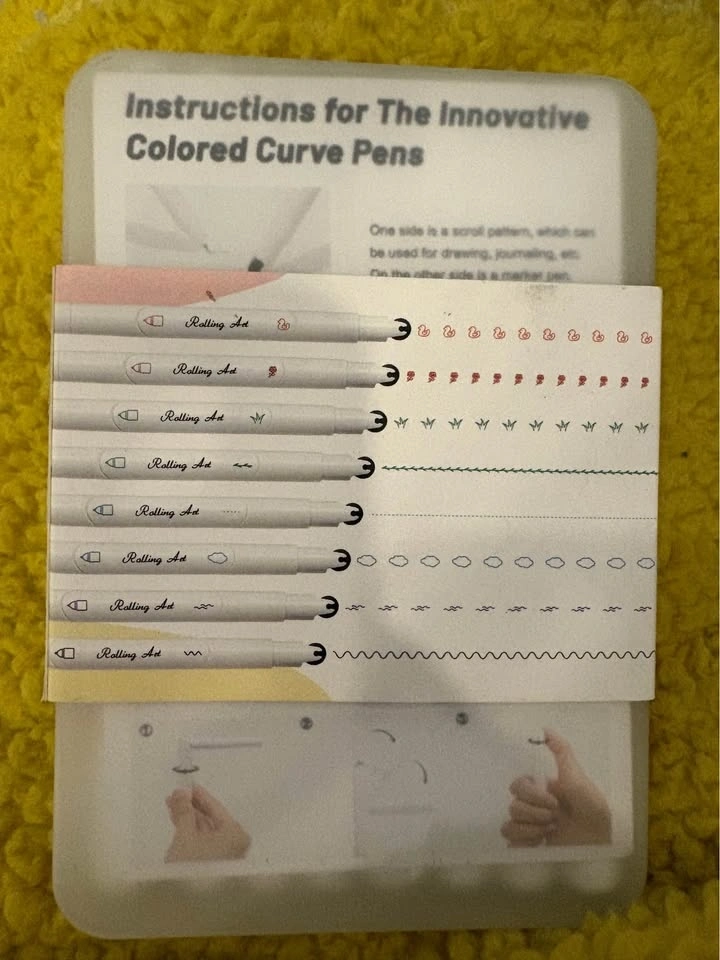 Instructions for The Innovative
Colored Curve Pens
One side is a scroll pattern, which can
be used for drawing, journaling, etc.
On the other side is a marker pen,
Rolling Art
Rolling Art
Rolling Art
Rolling Art
Rolling Art
Rolling Art
Rolling Art
Rolling Art
①
②
③